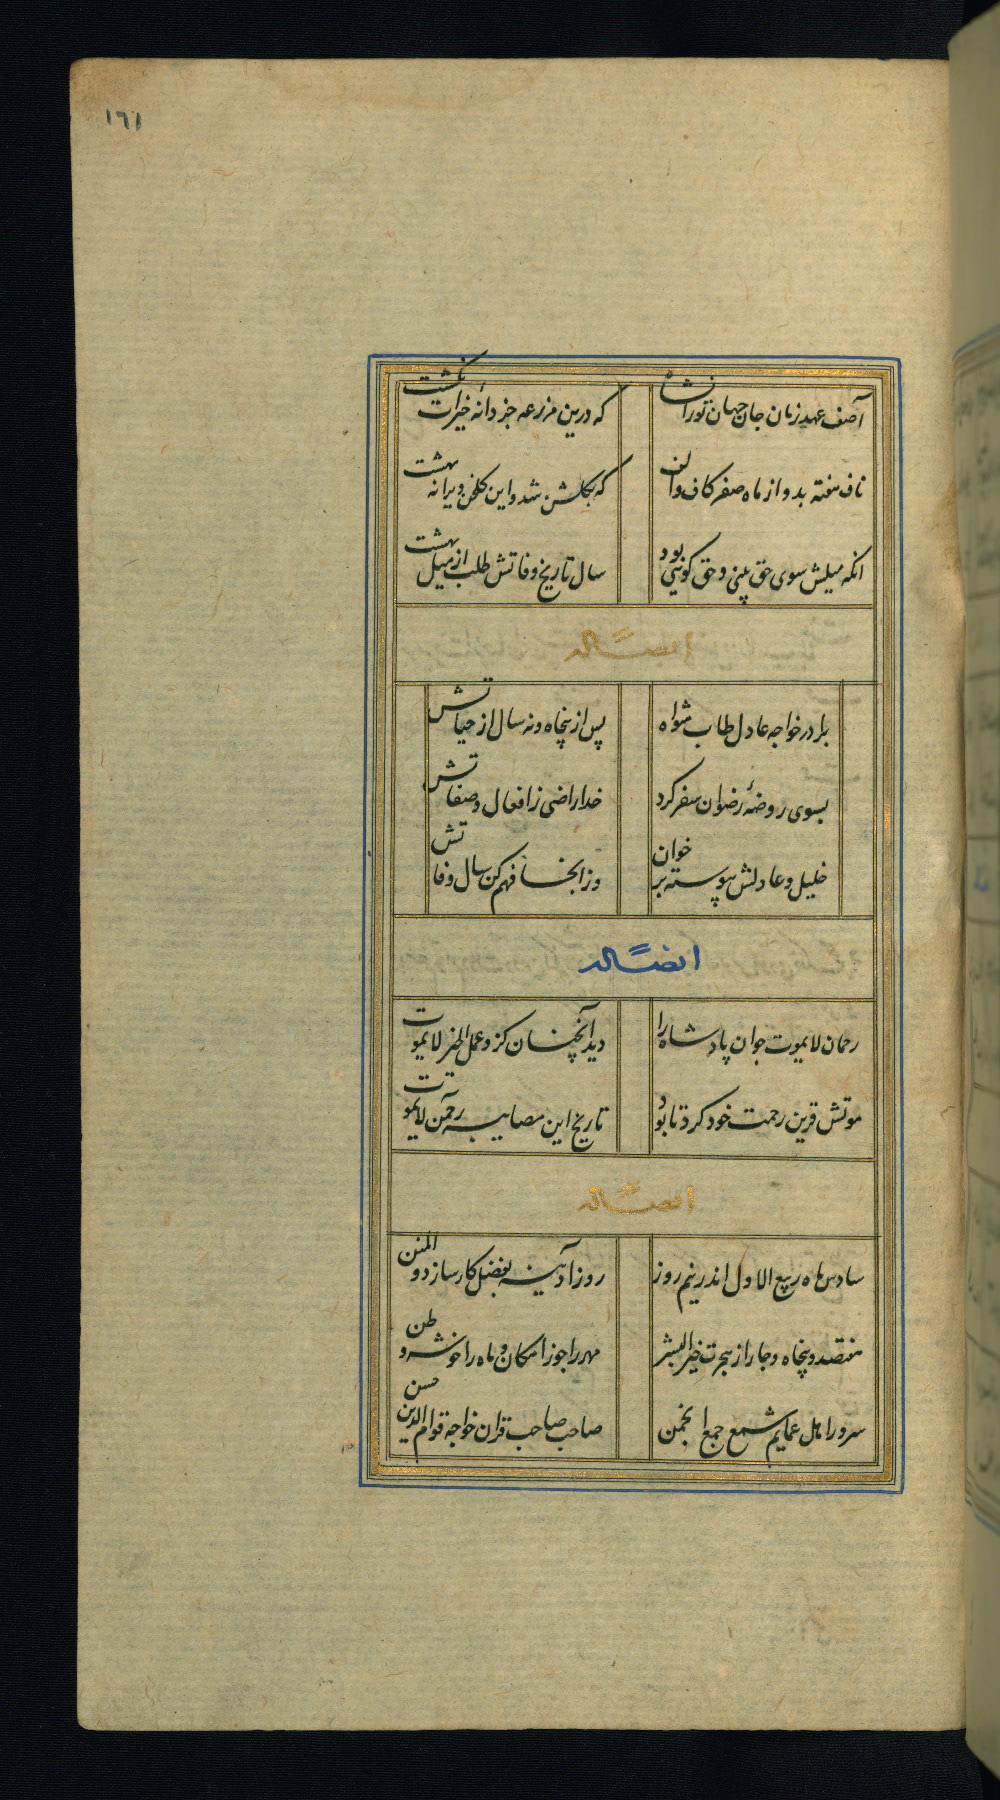 ١٦١
آصف عهد زمان جان جهان تورانشاه
که درین مزرعه جز دانهٔ خیرات نکشت
ناف هفته بد و از ماه صفر کاف و الف
که بگلشن شد و این گلخن ویرانه بهشت
انکه میلش سوی حق بینی و حق کویی بود
سال تاریخ وفاتش طلب از میل بهشت
ایضًا له
برادر خواجه عادل طاب مثواه
پس از پنجاه و نه سال از حیاتش
بسوی روضهٔ رضوان سفر کرد
خدا راضی ز افعال و صفاتش
خلیل و عادلش پیوسته بر خوان
وز انجا فهم کن سال وفاتش
ایضًا له
رحمان لایموت جوان پادشاه را
دید آنچنان کزو عمل الخیر لایموت
موتش قرین رحمت خود کرد تا بود
تاریخ این مصایبه رحمن لایموت
ایضًا له
سادس ماه ربیع الاول اندر نیم روز
روز آدینه بفضل کارساز ذو المنن
هفتصد و پنجاه و چار از هجرت خیر البشر
مهر را جوزا مکان و ماه را خوشه وطن
سرور اهل عمایم شمع جمع انجمن
صاحب صاحب قران خواجه قوام الدین حسن